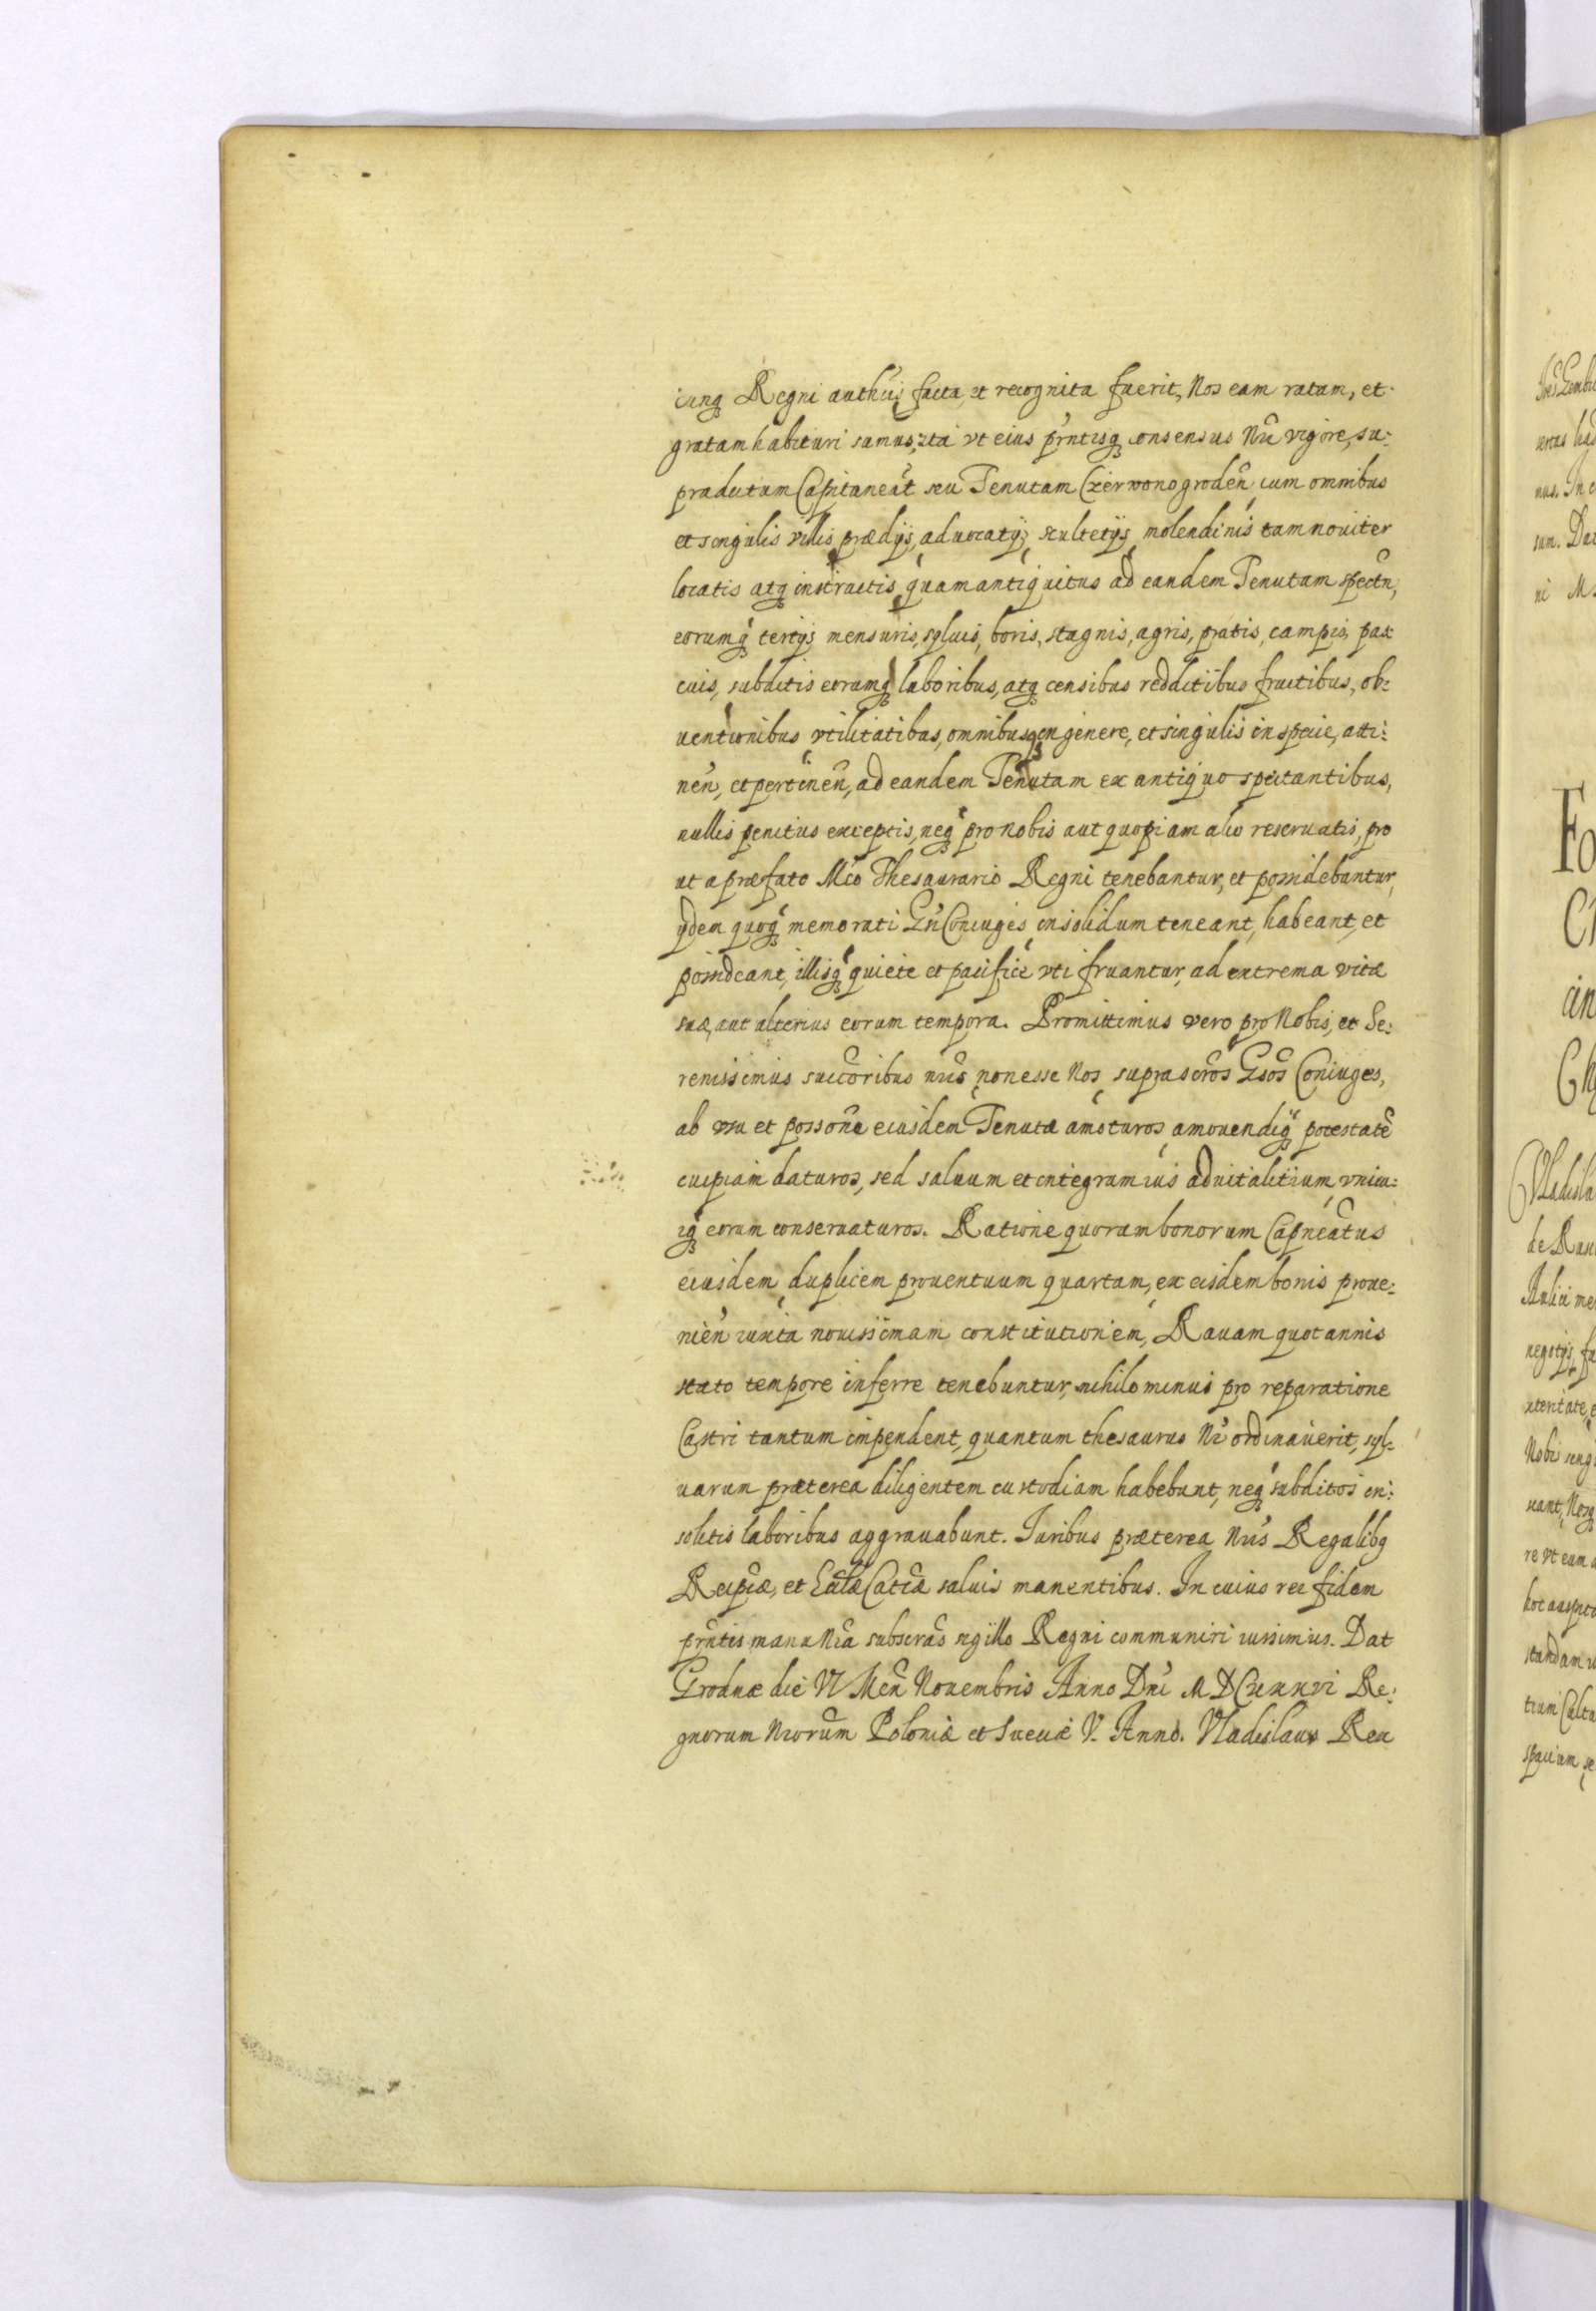 cunq Regni authcis facta et recognita fuerit, Nos eam ratam, et
gratam habituri sumus, ita vt eius pr̃ntisq consensus Nr̃i vigore, su:
pradictam Capitaneat̃ seu Tenutam Czerwonogroden̄ cum omnibus
et singulis villis prædijs, aduocatijs, scultetijs, molendinis tam nouiter
locatis atq instructis, quam antiquitus ad eandem Tenutam spectn̄,
eorumq tertijs mensuris, syluis, boris, stagnis, agris, pratis, campis, pas
cuis, subditis eorumq laboribus, atq censibus redditibus fructibus, ob:
uentionibus vtilitatibus, omnibusq in genere, et singulis in specie, atti:
nen̄, et pertinen̄, ad eandem Tenutam ex antiquo spectantibus,
nullis penitus exceptis, neq pro Nobis aut quopiam alio reseruatis, pro
ut a præfato Mco Thesaurario Regni tenebantur, et possidebantur,
ijdem quoq memorati Gn̄ Coniuges insolidum teneant, habeant, et
possideant, illisq quiete et pacifice vti fruantur, ad extrema vitæ
suæ, aut alterius eorum tempora. Promittimus vero pro Nobis, et Se:
renissimis succoribus nr̃is non esse Nos suprascr̃os Gsos Coniuges,
ab vsu et posson̄e eiusdem Tenutæ amoturos amouendiq potestatē
cuipiam daturos, sed saluum et integrum ius aduitalitium vnicu:
iq eorum conseruaturos. Ratione quorum bonorum Capneatus
eiusdem duplicem prouentuum quartam, ex eisdem bonis proue:
nien̄ iuxta nouissimam constitutionem, Rauam quotannis
stato tempore inferre tenebuntur, nihilo minus pro reparatione
Castri tantum impendent, quantum thesaurus Nr̃ ordinauerit, syl:
uarum præterea diligentem custodiam habebunt, neq subditos in:
solitis laboribus aggrauabunt. Iuribus præterea Nr̃is Regalibq
Reipcæ, et Ecclæ Catcæ saluis manentibus. In cuius rei fidem
pr̃ntes manu Nr̃a subscr̃as sigillo Regni communiri iussimus. Dat
Grodnæ die VI Men̄ Nouembris Anno Dni MDCXXXVI Re:
gnorum Nr̃orum Poloniæ et Sueciæ V. Anno. Vladislaus Rex